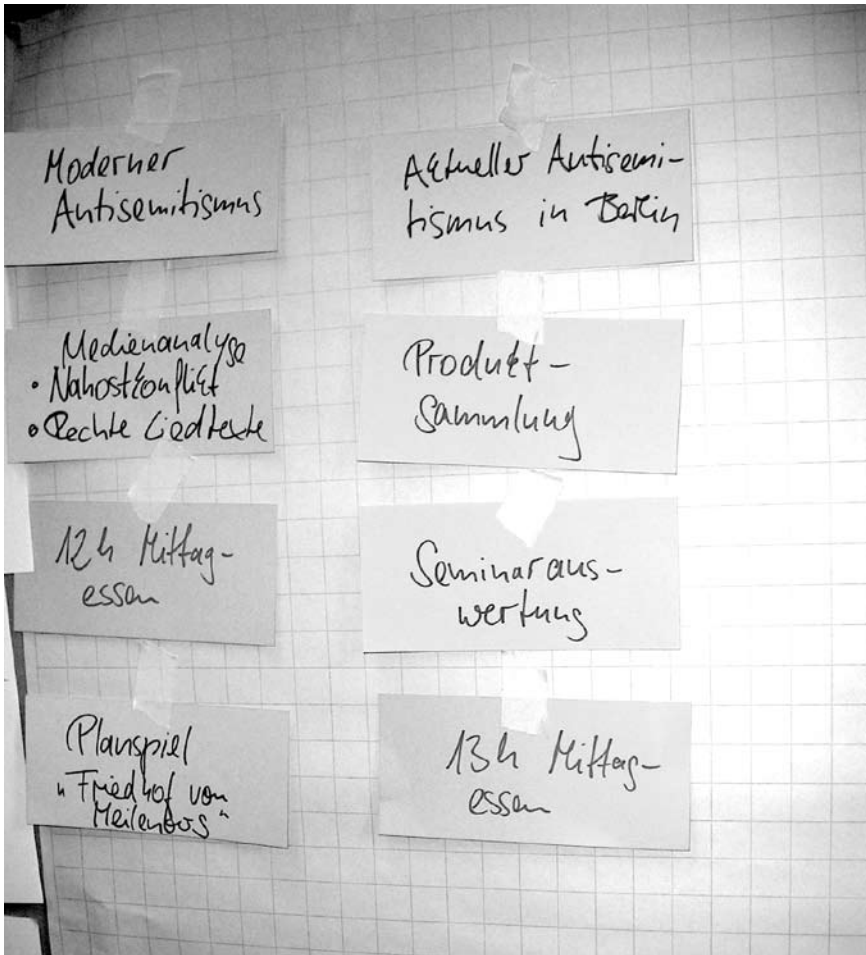 Moderner
Antisemitismus
Medienanalyse
• Nahostkonflikt
• Rechte Liedtexte
12h Mittag-
essen
Planspiel
"Friedhof von
Aktueller Antisemi-
tismus in Berlin
Produkt-
Sammlung
Seminaraus-
wertung
13h Mittag-
essen